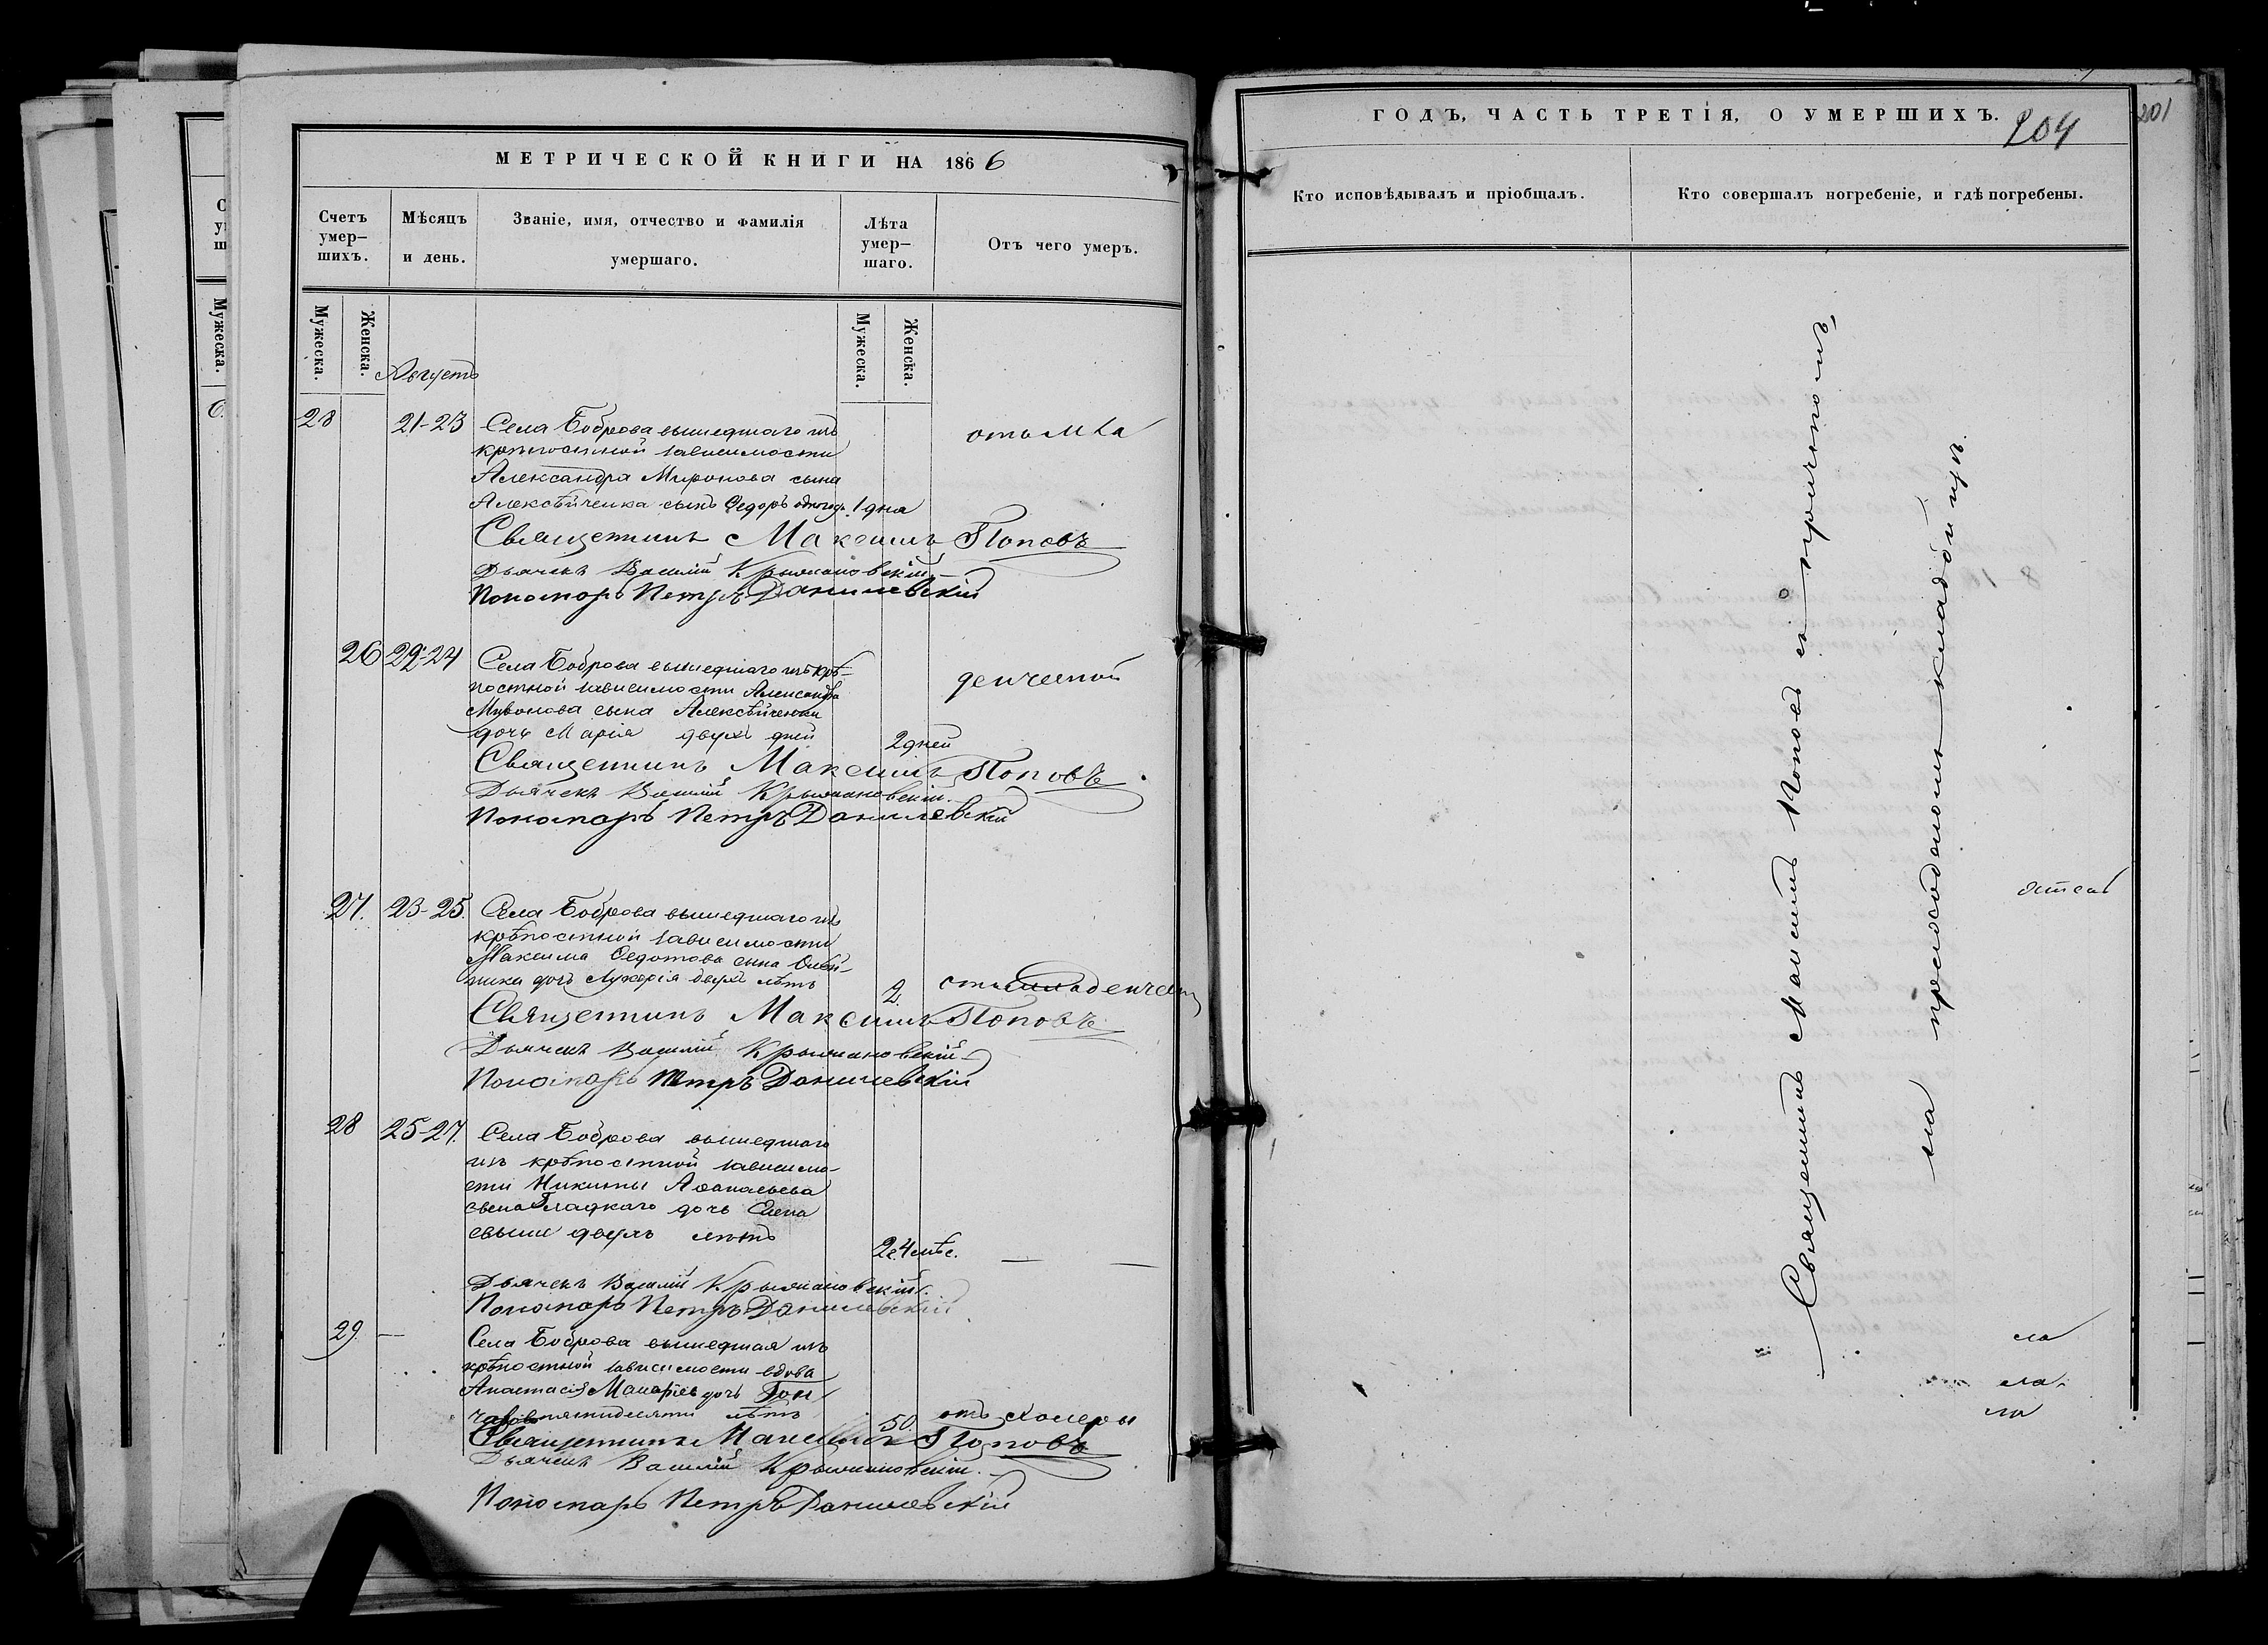 МЕТРИЧЕСКОЙ КНИГИ НА 1866
Счетъ умер-шихъ.
Мѣсяцъ и день.
Званіе, имя, отчество и фамилія умершаго.
Лѣта умер-шаго.
Отъ чего умеръ.
Мужеска.
Женска.
Мужеска.
Женска.
Августъ
28 21-23 Села Боброва вышедшаго изъ
крѣпостной зависимости
Александра Миронова сына
Алексѣйченка сынъ Ѳедоръ 1 дня
Священникъ Максимъ Поповъ
Дьячекъ Василій Крыжановскій
Пономарь Петръ Данилевскій
26 22-24 Села Боброва вышедшаго изъ крѣ-
постной зависимости Александра
Миронова сына Алексѣйченка
дочь Марія двухъ дней 2 дней
денчествой
Священникъ Максимъ Поповъ
Дьячекъ Василій Крыжановскій
Пономарь Петръ Данилевскій
27. 23-25. Села Боброва вышедшаго изъ
крѣпостной зависимости
Максима Ѳедотова сына
дочь двухъ лѣтъ 2.
Священникъ Максимъ Поповъ
Дьячекъ Василій Крыжановскій
Пономарь Петръ Данилевскій
28 25-27. Села Боброва вышедшаго
изъ крѣпостной зависимо-
сти Никиты Аѳанасьева
сына Гладкаго дочь Елена
свыше двухъ лѣтъ
2 г. 4 мѣс. — —
Дьячекъ Василій Крыжановскій
Пономарь Петръ Данилевскій
29 — Села Боброва вышедшая изъ
крѣпостной зависимости вдова
Анастасія дочь Гон
чарова пятидесяти лѣтъ 50. отъ холеры
Священникъ Максимъ Поповъ
Дьячекъ Василій Крыжановскій
Пономарь Петръ Данилевскій
ГОДЪ, ЧАСТЬ ТРЕТІЯ, О УМЕРШИХЪ.
204
201
Кто исповѣдывалъ и пріобщалъ.
Кто совершалъ погребеніе, и гдѣ погребены.
Священникъ Максимъ Поповъ съ причтомъ
на приходскомъ кладбищѣ